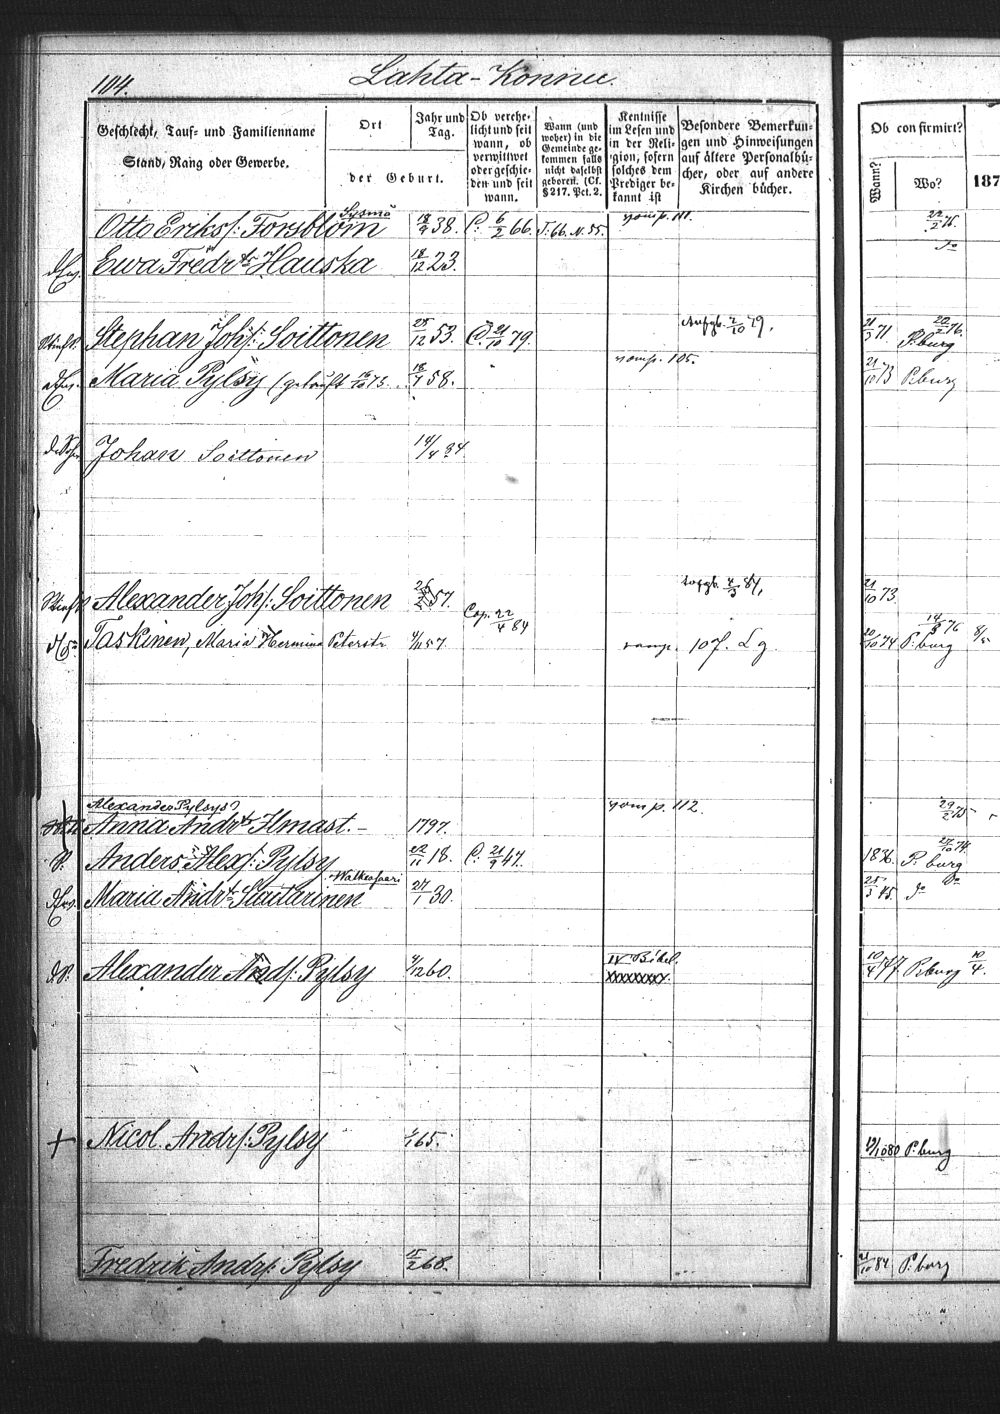 104.
Lahta-Konnu.
Geschlecht, Tauf= und Familienname
Stand, Rang oder Gewerbe.
Ort
der Geburt.
Jahr und
Tag.
Ob verehe=
licht und seit
wann, ob
verwittwet
oder geschie=
den und seit
wann.
Wann (und
woher) in die
Gemeinde ge=
kommen falls
nicht daselbst
geboren. (Cf.
§ 217. Pct. 2.
Kentnisse
im Lesen und
in der Reli=
gion, sofern
solches dem
Prediger be=
kannt ist
Besondere Bemerkun=
gen und Hinweisungen
auf ältere Personalbü=
cher, oder auf andere
Kirchen bücher.
Ob confirmirt?
Wann?
Wo?
187
Otto Eriks/: Forsblom Sysmä 18/9 38. C. 6/2 66. J. 66. N. 55. 22/2 75.
Ewa Fredr Hauska 14/12 23. do
Stephan Joh/: Soittonen 25/12 53. C. 21/10 79. Aufgb. 2/10 79. 21/3 71. P.burg 22/2 76.
Maria Pylsy (getauft 16/10 73. 18/1 58. romp. 105. 21/10 73 P.burg
Johan Soittonen 14/4 84
Alexander Joh/: Soittonen 57. 4/3 84, 21/10 73.
Taskinen, Maria Hermina Petersb. 4/11 57. Cop. 22/4 84 romp. 107. Lg. 20/10 74 P.burg 76
Alexander Pylsys
Anna Andr Ilmast. – 1797. romp. 112. 29/2 75
Anders Alex/: Pylsy 22/11 18. C. 21/9 47. 1836. P. burg
Maria Andr Slautarinen Walkeasaari 27/1 30. 25/3 45. do
Alexander And/: Pylsy 4/12 60. IV Bibel. xxxxxxxx. 10/4 77 P.burg 10/4.
Nicol. Andr/: Pylsy 65. 19/10 80 P.burg
Fredrik Andr/: Pylsy 15/2 68. 21/10 84 P.burg